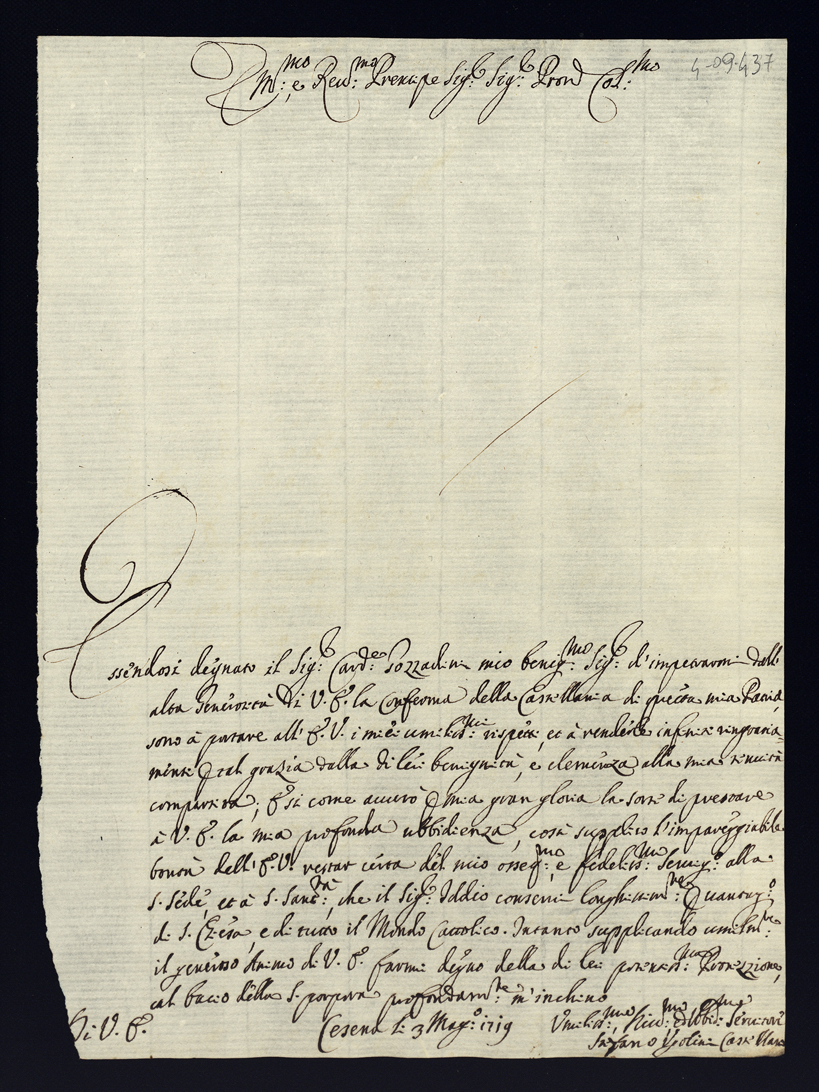 Em:mo e Reu:mo Prencipe Sig: Sig: Pron Col:mo
4-09-437
Essendosi degnato il Sig: Card:e Gozzadini mio benig:mo Sig: d'impetrarmi dall'
alta Generosità di V. E. la Conferma della Castellania di questa mia Patria,
sono à portare all' E. V. i miei umiliss:mi rispetti, et à renderle infiniti ringrazia
menti p tal grazia dalla di lei benignità, e clemenza alla mia tenuità
compartita; E si come accerò p mia gran gloria la sorte di prestare
à V. E. la mia profonda ubbidienza, così supplico l'impareggiabile
bontà dell' E. V. restar certa del mio osseq:mo e fideliss:mo Seruig:o alla
S. Sede, et à S. Sant:tà, che il Sig: Iddio conserui longhissim:te p uantag:o
di S. Chiesa, e di tutto il Mondo Cattolico. Intanto supplicando umilm:te
il generoso Animo di V. E. farmi degno della di lei potentiss:ma Protezzione,
al bacio della S. porpora profondam:te m'inchino
Di V. E.
Cesena li 3 Mag:o 1719
Vmiliss:mo, Diu:mo et obbl:mo Seruitore
Stefano Vgolini Castellano